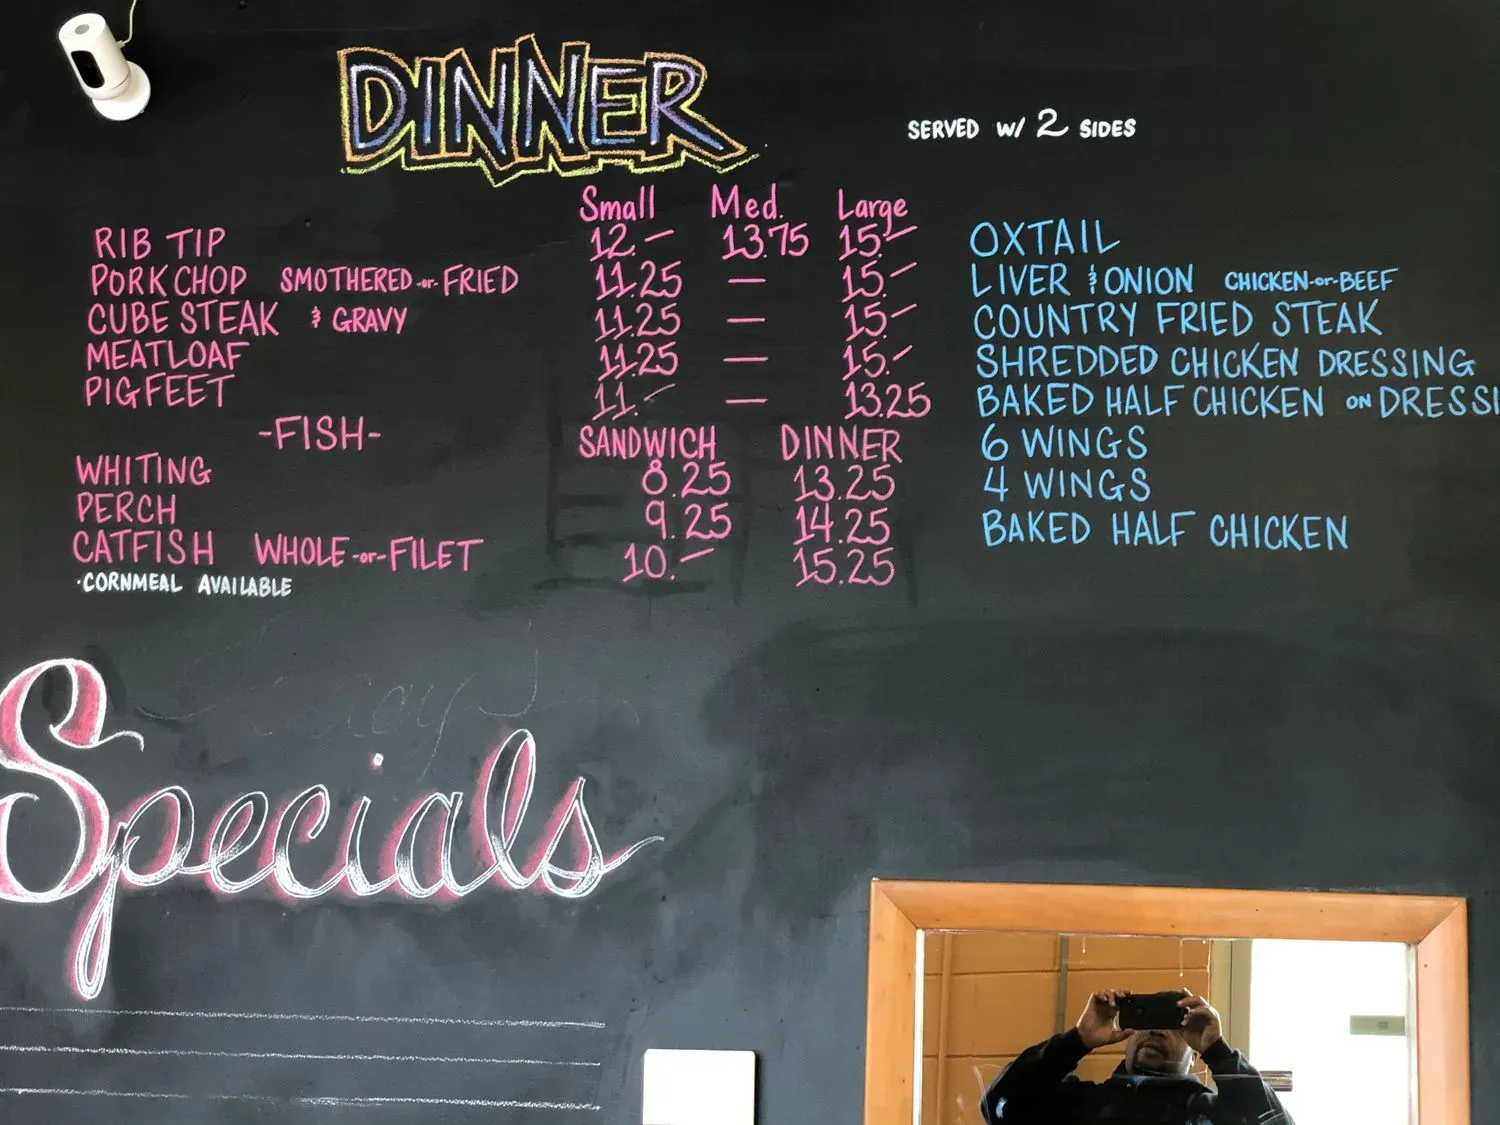 DINNER
SERVED W/ 2 SIDES
Small Med. Large
RIB TIP 12.— 13.75 15.—
PORK CHOP SMOTHERED -or- FRIED 11.25 — 15.—
CUBE STEAK & GRAVY 11.25 — 15.—
MEATLOAF 11.25 — 15.—
PIG FEET 11.— — 13.25
-FISH- SANDWICH DINNER
WHITING 8.25 13.25
PERCH 9.25 14.25
CATFISH WHOLE -or- FILET 10.— 15.25
·CORNMEAL AVAILABLE
OXTAIL
LIVER & ONION CHICKEN -or- BEEF
COUNTRY FRIED STEAK
SHREDDED CHICKEN DRESSING
BAKED HALF CHICKEN ON DRESSI
6 WINGS
4 WINGS
BAKED HALF CHICKEN
Specials